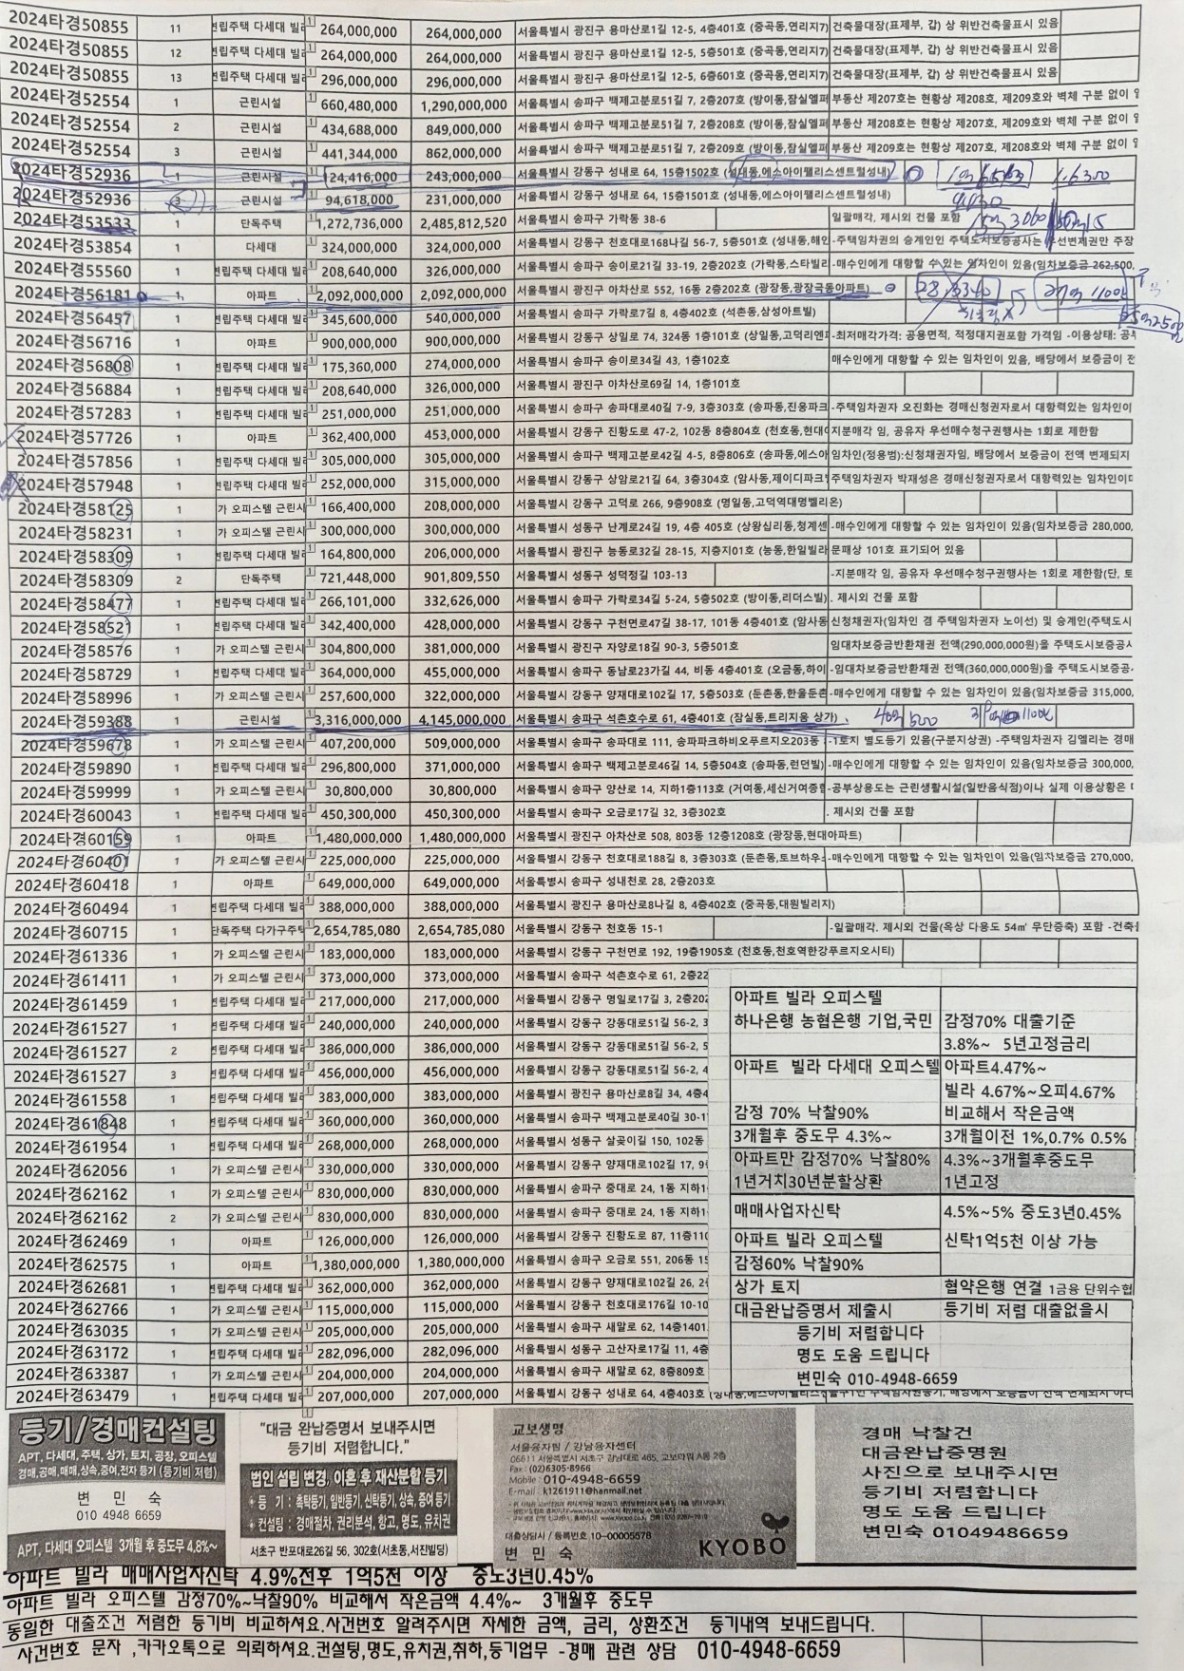 2024타경50855 11 연립주택 다세대 빌라 1 264,000,000 264,000,000 서울특별시 광진구 용마산로1길 12-5, 4층401호 (중곡동,연리지7) 건축물대장(표제부, 갑) 상 위반건축물표시 있음
2024타경50855 12 연립주택 다세대 빌라 1 264,000,000 264,000,000 서울특별시 광진구 용마산로1길 12-5, 5층501호 (중곡동,연리지7) 건축물대장(표제부, 갑) 상 위반건축물표시 있음
2024타경50855 13 연립주택 다세대 빌라 1 296,000,000 296,000,000 서울특별시 광진구 용마산로1길 12-5, 6층601호 (중곡동,연리지7) 건축물대장(표제부, 갑) 상 위반건축물표시 있음
2024타경52554 1 근린시설 1 660,480,000 1,290,000,000 서울특별시 송파구 백제고분로51길 7, 2층207호 (방이동,잠실엘퍼 부동산 제207호는 현황상 제208호, 제209호와 벽체 구분 없이
2024타경52554 2 근린시설 1 434,688,000 849,000,000 서울특별시 송파구 백제고분로51길 7, 2층208호 (방이동,잠실엘퍼 부동산 제208호는 현황상 제207호, 제209호와 벽체 구분 없이
2024타경52554 3 근린시설 1 441,344,000 862,000,000 서울특별시 송파구 백제고분로51길 7, 2층209호 (방이동,잠실엘퍼 부동산 제209호는 현황상 제207호, 제208호와 벽체 구분 없이
2024타경52936 1 근린시설 124,416,000 243,000,000 서울특별시 강동구 성내로 64, 15층1502호 (성내동,에스아이팰리스센트럴성내) 1.6300
2024타경52936 3 근린시설 94,618,000 231,000,000 서울특별시 강동구 성내로 64, 15층1501호 (성내동,에스아이팰리스센트럴성내)
2024타경53533 1 단독주택 1 1,272,736,000 2,485,812,520 서울특별시 송파구 가락동 38-6 일괄매각, 제시외 건물 포함
2024타경53854 1 다세대 1 324,000,000 324,000,000 서울특별시 강동구 천호대로168나길 56-7, 5층501호 (성내동,해인 -주택임차권의 승계인인 주택도시보증공사는 우선변제권만 주장
2024타경55560 1 연립주택 다세대 빌라 1 208,640,000 326,000,000 서울특별시 송파구 송이로21길 33-19, 2층202호 (가락동,스타빌리 -매수인에게 대항할 수 있는 임차인이 있음(임차보증금 262,500,
2024타경56181 1 아파트 1 2,092,000,000 2,092,000,000 서울특별시 광진구 아차산로 552, 16동 2층202호 (광장동,광장극동아파트)
2024타경56457 1 연립주택 다세대 빌라 1 345,600,000 540,000,000 서울특별시 송파구 가락로7길 8, 4층402호 (석촌동,삼성아트빌)
2024타경56716 1 아파트 1 900,000,000 900,000,000 서울특별시 강동구 상일로 74, 324동 1층101호 (상일동,고덕리엔 -최저매각가격: 공용면적, 적정대지권포함 가격임 -이용상태: 공
2024타경56808 1 연립주택 다세대 빌라 1 175,360,000 274,000,000 서울특별시 송파구 송이로34길 43, 1층102호 매수인에게 대항할 수 있는 임차인이 있음, 배당에서 보증금이 전
2024타경56884 1 연립주택 다세대 빌라 1 208,640,000 326,000,000 서울특별시 광진구 아차산로69길 14, 1층101호
2024타경57283 1 연립주택 다세대 빌라 1 251,000,000 251,000,000 서울특별시 송파구 송파대로40길 7-9, 3층303호 (송파동,진용파크 -주택임차권자 오진화는 경매신청권자로서 대항력있는 임차인이
2024타경57726 1 아파트 1 362,400,000 453,000,000 서울특별시 강동구 진황도로 47-2, 102동 8층804호 (천호동,현대 지분매각 임, 공유자 우선매수청구권행사는 1회로 제한함
2024타경57856 1 연립주택 다세대 빌라 1 305,000,000 305,000,000 서울특별시 송파구 백제고분로42길 4-5, 8층806호 (송파동,에스아 임차인(정용범):신청채권자임, 배당에서 보증금이 전액 변제되지
2024타경57948 1 연립주택 다세대 빌라 1 252,000,000 315,000,000 서울특별시 강동구 상암로21길 64, 3층304호 (암사동,제이디파크 주택임차권자 박재성은 경매신청권자로서 대항력있는 임차인이
2024타경58125 1 가 오피스텔 근린시 1 166,400,000 208,000,000 서울특별시 강동구 고덕로 266, 9층908호 (명일동,고덕역대명벨리온)
2024타경58231 1 가 오피스텔 근린시 1 300,000,000 300,000,000 서울특별시 성동구 난계로24길 19, 4층 405호 (상왕십리동,청계센 -매수인에게 대항할 수 있는 임차인이 있음(임차보증금 280,000,
2024타경58309 1 연립주택 다세대 빌라 1 164,800,000 206,000,000 서울특별시 광진구 능동로32길 28-15, 지층지01호 (능동,한일빌라 문패상 101호 표기되어 있음
2024타경58309 2 단독주택 1 721,448,000 901,809,550 서울특별시 성동구 성덕정길 103-13 -지분매각 임, 공유자 우선매수청구권행사는 1회로 제한함(단, 토
2024타경58477 1 연립주택 다세대 빌라 1 266,101,000 332,626,000 서울특별시 송파구 가락로34길 5-24, 5층502호 (방이동,리더스빌) . 제시외 건물 포함
2024타경58521 1 연립주택 다세대 빌라 1 342,400,000 428,000,000 서울특별시 강동구 구천면로47길 38-17, 101동 4층401호 (암사동 신청채권자(임차인 겸 주택임차권자 노이선) 및 승계인(주택도시
2024타경58576 1 가 오피스텔 근린시 1 304,800,000 381,000,000 서울특별시 광진구 자양로18길 90-3, 5층501호 임대차보증금반환채권 전액(290,000,000원)을 주택도시보증공사
2024타경58729 1 연립주택 다세대 빌라 1 364,000,000 455,000,000 서울특별시 송파구 동남로23가길 44, 비동 4층401호 (오금동,하이 -임대차보증금반환채권 전액(360,000,000원)을 주택도시보증공
2024타경58996 1 가 오피스텔 근린시 1 257,600,000 322,000,000 서울특별시 강동구 양재대로102길 17, 5층503호 (둔촌동,한울둔촌 -매수인에게 대항할 수 있는 임차인이 있음(임차보증금 315,000,
2024타경59388 1 근린시설 1 3,316,000,000 4,145,000,000 서울특별시 송파구 석촌호수로 61, 4층401호 (잠실동,트리지움 상가)
2024타경59678 1 가 오피스텔 근린시 1 407,200,000 509,000,000 서울특별시 송파구 송파대로 111, 송파파크하비오푸르지오203동 -1토지 별도등기 있음(구분지상권) -주택임차권자 김엘리는 경매
2024타경59890 1 연립주택 다세대 빌라 1 296,800,000 371,000,000 서울특별시 송파구 백제고분로46길 14, 5층504호 (송파동,런던빌) -매수인에게 대항할 수 있는 임차인이 있음(임차보증금 300,000,
2024타경59999 1 가 오피스텔 근린시 1 30,800,000 30,800,000 서울특별시 송파구 양산로 14, 지하1층113호 (거여동,세신거여종합 -공부상용도는 근린생활시설(일반음식점)이나 실제 이용상황은
2024타경60043 1 연립주택 다세대 빌라 1 450,300,000 450,300,000 서울특별시 송파구 오금로17길 32, 3층302호 . 제시외 건물 포함
2024타경60159 1 아파트 1 1,480,000,000 1,480,000,000 서울특별시 광진구 아차산로 508, 803동 12층1208호 (광장동,현대아파트)
2024타경60401 1 가 오피스텔 근린시 1 225,000,000 225,000,000 서울특별시 강동구 천호대로188길 8, 3층303호 (둔촌동,토브하우스 -매수인에게 대항할 수 있는 임차인이 있음(임차보증금 270,000,
2024타경60418 1 아파트 1 649,000,000 649,000,000 서울특별시 송파구 성내천로 28, 2층203호
2024타경60494 1 연립주택 다세대 빌라 1 388,000,000 388,000,000 서울특별시 광진구 용마산로8나길 8, 4층402호 (중곡동,대원빌리지)
2024타경60715 1 단독주택 다가구주택 1 2,654,785,080 2,654,785,080 서울특별시 강동구 천호동 15-1 -일괄매각. 제시외 건물(옥상 다용도 54㎡ 무단증축) 포함 -건축
2024타경61336 1 가 오피스텔 근린시 1 183,000,000 183,000,000 서울특별시 강동구 구천면로 192, 19층1905호 (천호동,천호역한강푸르지오시티)
2024타경61411 1 가 오피스텔 근린시 1 373,000,000 373,000,000 서울특별시 송파구 석촌호수로 61, 2층22
2024타경61459 1 연립주택 다세대 빌라 1 217,000,000 217,000,000 서울특별시 강동구 명일로17길 3, 2층202
2024타경61527 1 연립주택 다세대 빌라 1 240,000,000 240,000,000 서울특별시 강동구 강동대로51길 56-2, 3
2024타경61527 2 연립주택 다세대 빌라 1 386,000,000 386,000,000 서울특별시 강동구 강동대로51길 56-2, 5
2024타경61527 3 연립주택 다세대 빌라 1 456,000,000 456,000,000 서울특별시 강동구 강동대로51길 56-2, 4
2024타경61558 1 연립주택 다세대 빌라 1 383,000,000 383,000,000 서울특별시 광진구 용마산로8길 34, 4층4
2024타경61848 1 연립주택 다세대 빌라 1 360,000,000 360,000,000 서울특별시 송파구 백제고분로40길 30-1
2024타경61954 1 연립주택 다세대 빌라 1 268,000,000 268,000,000 서울특별시 성동구 살곶이길 150, 102동
2024타경62056 1 가 오피스텔 근린시 1 330,000,000 330,000,000 서울특별시 강동구 양재대로102길 17, 9
2024타경62162 1 가 오피스텔 근린시 1 830,000,000 830,000,000 서울특별시 송파구 중대로 24, 1동 지하1
2024타경62162 2 가 오피스텔 근린시 1 830,000,000 830,000,000 서울특별시 송파구 중대로 24, 1동 지하1
2024타경62469 1 아파트 1 126,000,000 126,000,000 서울특별시 강동구 진황도로 87, 11층110
2024타경62575 1 아파트 1 1,380,000,000 1,380,000,000 서울특별시 송파구 오금로 551, 206동 15
2024타경62681 1 연립주택 다세대 빌라 1 362,000,000 362,000,000 서울특별시 강동구 양재대로102길 26, 2
2024타경62766 1 가 오피스텔 근린시 1 115,000,000 115,000,000 서울특별시 강동구 천호대로176길 10-10
2024타경63035 1 가 오피스텔 근린시 1 205,000,000 205,000,000 서울특별시 송파구 새말로 62, 14층1401
2024타경63172 1 연립주택 다세대 빌라 1 282,096,000 282,096,000 서울특별시 성동구 고산자로17길 11, 4층
2024타경63387 1 가 오피스텔 근린시 1 204,000,000 204,000,000 서울특별시 송파구 새말로 62, 8층809호
2024타경63479 1 연립주택 다세대 빌라 1 207,000,000 207,000,000 서울특별시 강동구 성내로 64, 4층403호
아파트 빌라 오피스텔
하나은행 농협은행 기업,국민 감정70% 대출기준
3.8%~ 5년고정금리
아파트 빌라 다세대 오피스텔 아파트4.47%~
빌라 4.67%~오피4.67%
감정 70% 낙찰90% 비교해서 작은금액
3개월후 중도무 4.3%~ 3개월이전 1%,0.7% 0.5%
아파트만 감정70% 낙찰80% 4.3%~3개월후중도무
1년거치30년분할상환 1년고정
매매사업자신탁 4.5%~5% 중도3년0.45%
아파트 빌라 오피스텔 신탁1억5천 이상 가능
감정60% 낙찰90%
상가 토지 협약은행 연결 1금융 단위수협
대금완납증명서 제출시 등기비 저렴 대출없을시
등기비 저렴합니다
명도 도움 드립니다
변민숙 010-4948-6659
등기/경매컨설팅
APT, 다세대, 주택, 상가, 토지, 공장, 오피스텔
경매,공매,매매,상속,증여,전자 등기 (등기비 저렴)
변 민 숙
010 4948 6659
APT, 다세대 오피스텔 3개월 후 중도무 4.8%~
"대금 완납증명서 보내주시면
등기비 저렴합니다."
법인 설립 변경, 이혼 후 재산분할 등기
+ 등 기 : 촉탁등기, 일반등기, 신탁등기, 상속, 증여 등기
+ 컨설팅 : 경매절차, 권리분석, 항고, 명도, 유치권
서초구 반포대로26길 56, 302호(서초동,서진빌딩)
교보생명
서울융자팀 / 강남융자센터
06611 서울특별시 서초구 강남대로 465, 교보타워 A동 2층
Fax : (02)6305-8966
Mobile : 010-4948-6659
E-mail : k1261911@hanmail.net
대출상담사 / 등록번호 10-00005578
변 민 숙
KYOBO
경매 낙찰건
대금완납증명원
사진으로 보내주시면
등기비 저렴합니다
명도 도움 드립니다
변민숙 01049486659
아파트 빌라 매매사업자신탁 4.9%전후 1억5천 이상 중도3년0.45%
아파트 빌라 오피스텔 감정70%~낙찰90% 비교해서 작은금액 4.4%~ 3개월후 중도무
동일한 대출조건 저렴한 등기비 비교하셔요.사건번호 알려주시면 자세한 금액, 금리, 상환조건 등기내역 보내드립니다.
사건번호 문자 ,카카오톡으로 의뢰하셔요.컨설팅,명도,유치권,취하,등기업무 -경매 관련 상담 010-4948-6659